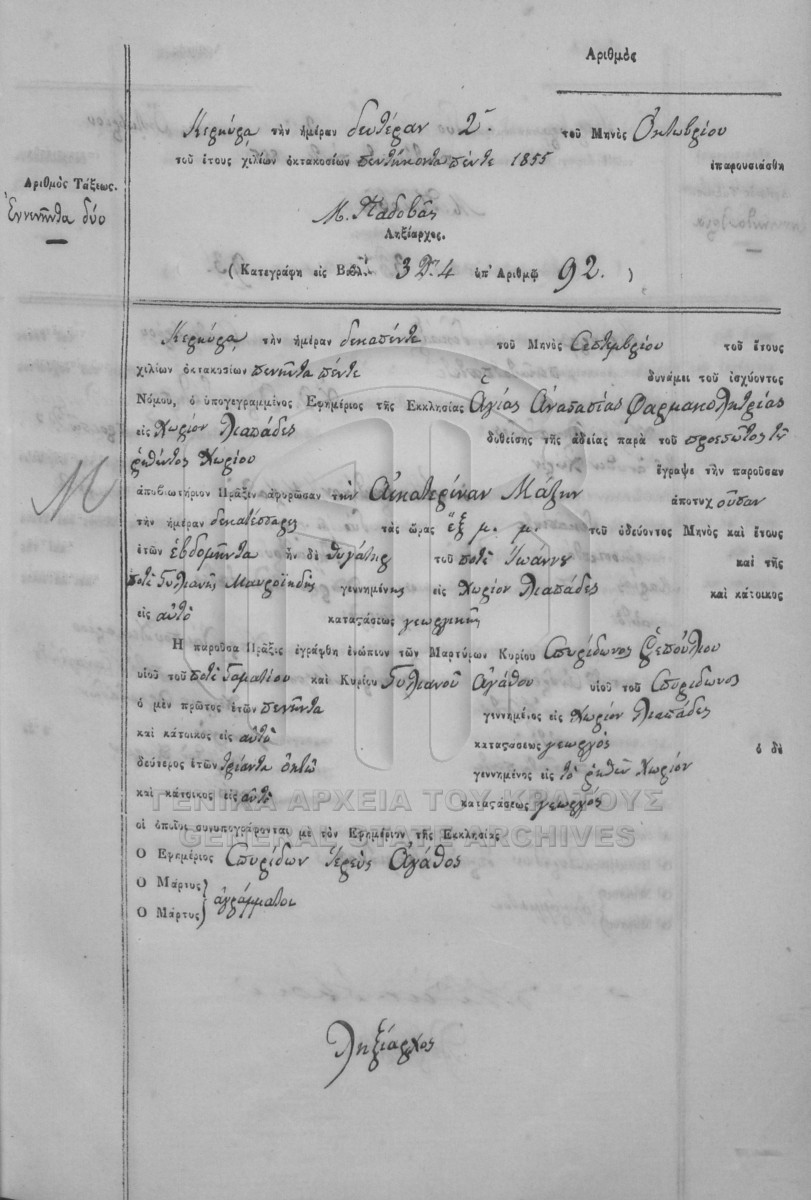 Αριθμὸς
Κερκύρα τὴν ἡμέραν δευτέραν 2. τοῦ Μηνὸς Ὀκτωβρίου
τοῦ ἔτους χιλίων ὀκτακοσίων πεντήκοντα πέντε 1855 ἐπαρουσιάσθη
Ἀριθμὸς Τάξεως.
Ἐννενῆντα δύο
Μ. Παδοβᾶς
Ληξίαρχος.
(Κατεγράφη εἰς Βιβλ. 3 4 ὑπ' Ἀριθμῷ 92.)
Κερκύρα, τὴν ἡμέραν δεκαπέντε τοῦ Μηνὸς Σεπτεμβρίου τοῦ ἔτους
χιλίων ὀκτακοσίων πενῆντα πέντε δυνάμει τοῦ ἰσχύοντος
Νόμου, ὁ ὑπογεγραμμένος Ἐφημέριος τῆς Ἐκκλησίας Ἁγίας Ἀναστασίας Φαρμακολητρίας
εἰς Χωρίον Λιαπάδες δοθείσης τῆς ἀδείας παρὰ τοῦ προεστῶτος τοῦ
ῥηθέντος Χωρίου ἔγραψε τὴν παροῦσαν
ἀποβιωτήριον Πρᾶξιν ἀφορῶσαν τὴν Αἰκατερίναν Μάζην ἀποτυχοῦσαν
τὴν ἡμέραν δεκατέσσαρες τὰς ὥρας ἓξ μ. μ. τοῦ ὁδεύοντος Μηνὸς καὶ ἔτους
ἐτῶν ἑβδομῆντα ἡ δὲ θυγάτηρ τοῦ ποτὲ Ἰωάννου καὶ τῆς
ποτὲ Στυλιανῆς γεννημένης εἰς Χωρίον Λιαπάδες καὶ κάτοικος
εἰς αὐτὸ καταστάσεως γεωργικῆς
Ἡ παροῦσα Πρᾶξις ἐγράφθη ἐνώπιον τῶν Μαρτύρων Κυρίου Σπυρίδωνος
υἱοῦ τοῦ ποτὲ Σταματίου καὶ Κυρίου Στυλιανοῦ Ἀγάθου υἱοῦ τοῦ Σπυρίδωνος
ὁ μὲν πρῶτος ἐτῶν πενῆντα γεννημένος εἰς Χωρίον Λιαπάδες
καὶ κάτοικος εἰς αὐτὸ καταστάσεως γεωργὸς ὁ δὲ
δεύτερος ἐτῶν τριάντα ὀκτὼ γεννημένος εἰς τὸ ῥηθὲν Χωρίον
καὶ κάτοικος εἰς αὐτὸ καταστάσεως γεωργὸς
οἱ ὁποῖοι συνυπογράφονται μὲ τὸν Ἐφημέριον τῆς Ἐκκλησίας
Ὁ Ἐφημέριος Σπυρίδων Ἱερεὺς Ἀγάθος
Ὁ Μάρτυς
Ὁ Μάρτυς } ἀγράμματοι
Ληξίαρχος
ΓΕΝΙΚΑ ΑΡΧΕΙΑ ΤΟΥ ΚΡΑΤΟΥΣ
GENERAL STATE ARCHIVES